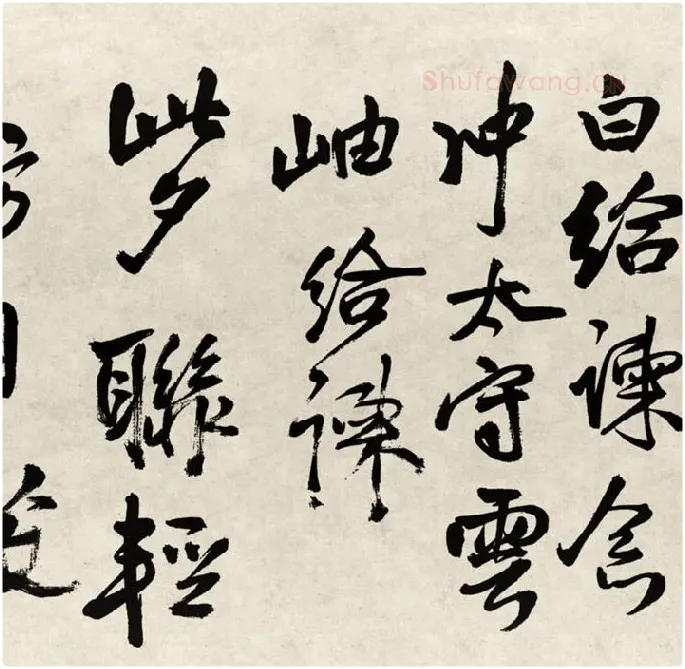 Shufawang.cn
白給諫念
冲太守雲
岫給諫
此夕聯輕